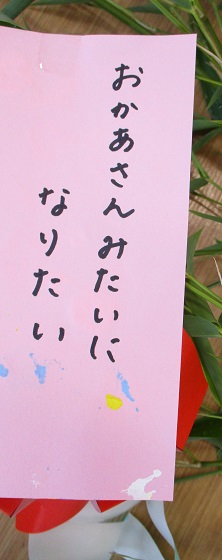 おかあさんみたいに
なりたい